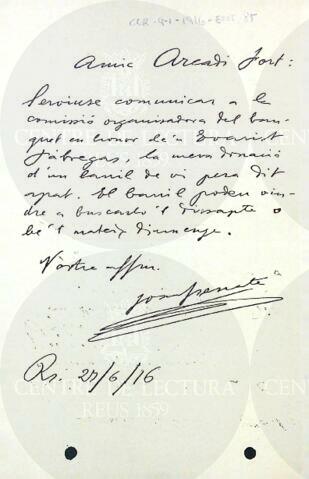 Amic Arcadi Fort:
Serviuse comunicar a la
comissió organisadora del ban-
quet en honor de'n Evarist
Fàbregas, la meva donació
d'un barril de vi pera dit
apat. El barril poden vin-
dre a buscarlo'l dissapte o
bé'l mateix diumenge.
Vòstre affm.
Rs. 27/6/16
CENTRE DE LECTURA
REUS 1859